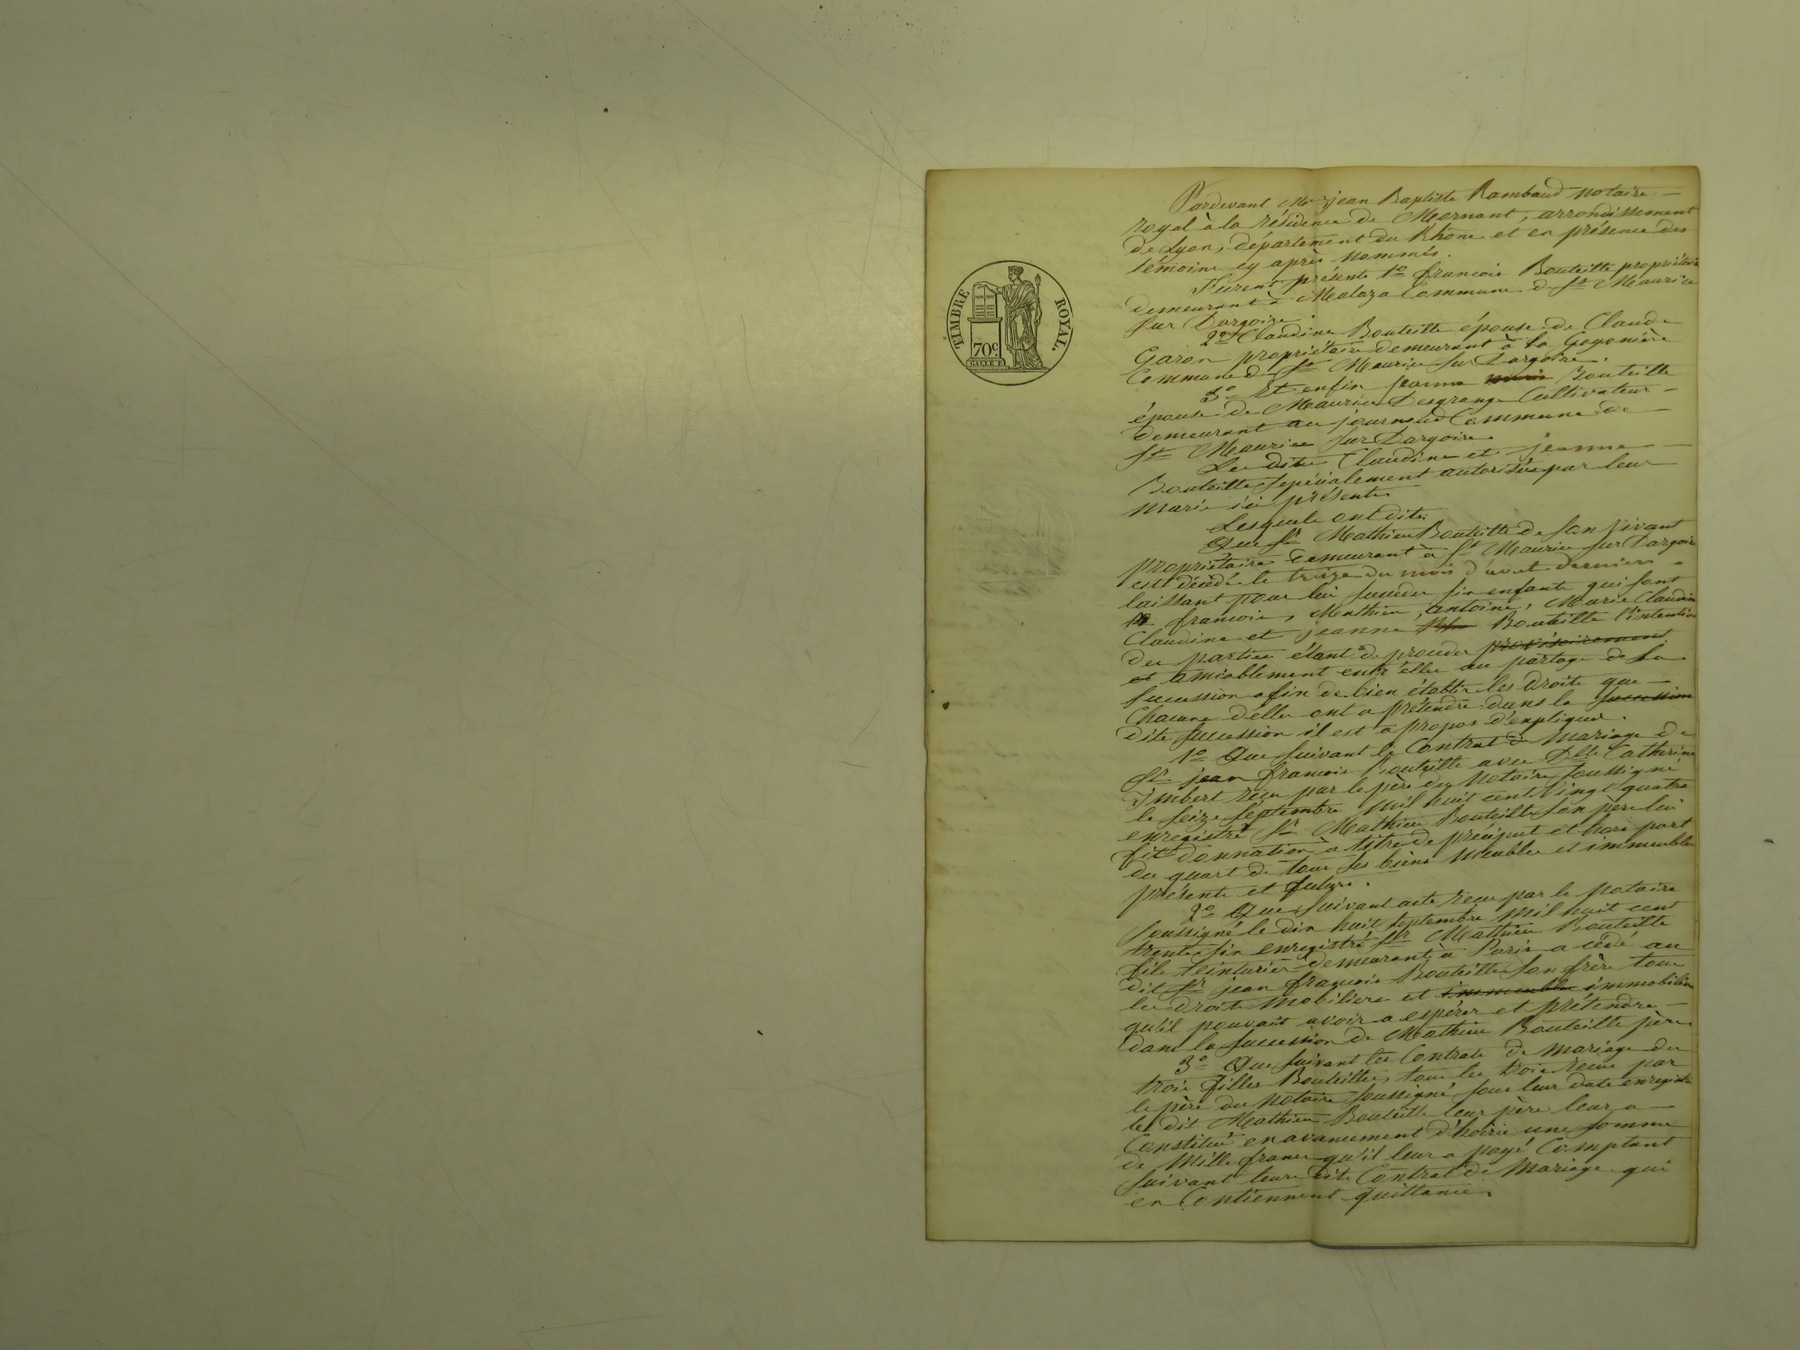 TIMBRE ROYAL.
70c
Pardevant Me jean Baptiste Rambaud notaire
royal à la résidence de Mornant, arrondissement
de Lyon, département du Rhône et en présence des
témoins cy après nommés.
Furent présents 1o francois Bouteille propriétaire
demeurant à Commune de St Maurice
sur Dargoire.
2o Claudine Bouteille épouse de Claude
Garon propriétaire demeurant à la
Commune de St Maurice sur Dargoire.
3o Et enfin jeanne Bouteille
épouse de Maurice Desgrange Cultivateur
demeurant au Commune de
St Maurice sur Dargoire
Les dites Claudine et jeanne
Bouteille spécialement autorisées par leur
maris ici présents
Lesquels ont dits
Que Sr Mathieu Bouteille de son vivant
propriétaire demeurant à St Maurice sur Dargoire
est décédé le treize du mois d'avout dernier
laissant pour lui succéder six enfants qui sont
francois, Mathieu, antoine, Marie Claudine
Claudine et jeanne Bouteille l'intention
des parties étant de procéder provisoirement
et amiablement entr'elles au partage de sa
succession afin de bien établir les droits que
Chacune d'elles ont a prétendre dans la succession
dite succession il est à propos d'expliquer.
1o Que suivant le Contrat de mariage de
Sr jean francois Bouteille avec Dlle Catherine
Imbert reçu par le père du Notaire soussigné
le seize septembre mil huit cent vingt quatre
enregistré Sr Mathieu Bouteille son père lui
fit donnation à titre de préciput et hors part
du quart de tous ses biens meubles et immeubles
présents et futurs.
2o Que suivant acte reçu par le notaire
soussigné le dix huit septembre mil huit cent
trente six enregistré Sr Mathieu Bouteille
fils teinturier demeurant à Paris a cédé au
dit Sr jean francois Bouteille son frère tous
les droits mobiliers et immeubles immobiliers
qu'il pouvait avoir a espérer et prétendre
dans la succession de Mathieu Bouteille père
3o Que suivant les Contrats de mariage des
trois filles Bouteille, tous les trois reçus par
le père du notaire soussigné sous leur date enregistrés
le dit Mathieu Bouteille leur père leur a
Constitué en avancement d'hoirie une somme
de Mille francs qu'il leur a payé Comptant
suivant leurs dits Contrat de Mariage qui
en Contiennent quittance.